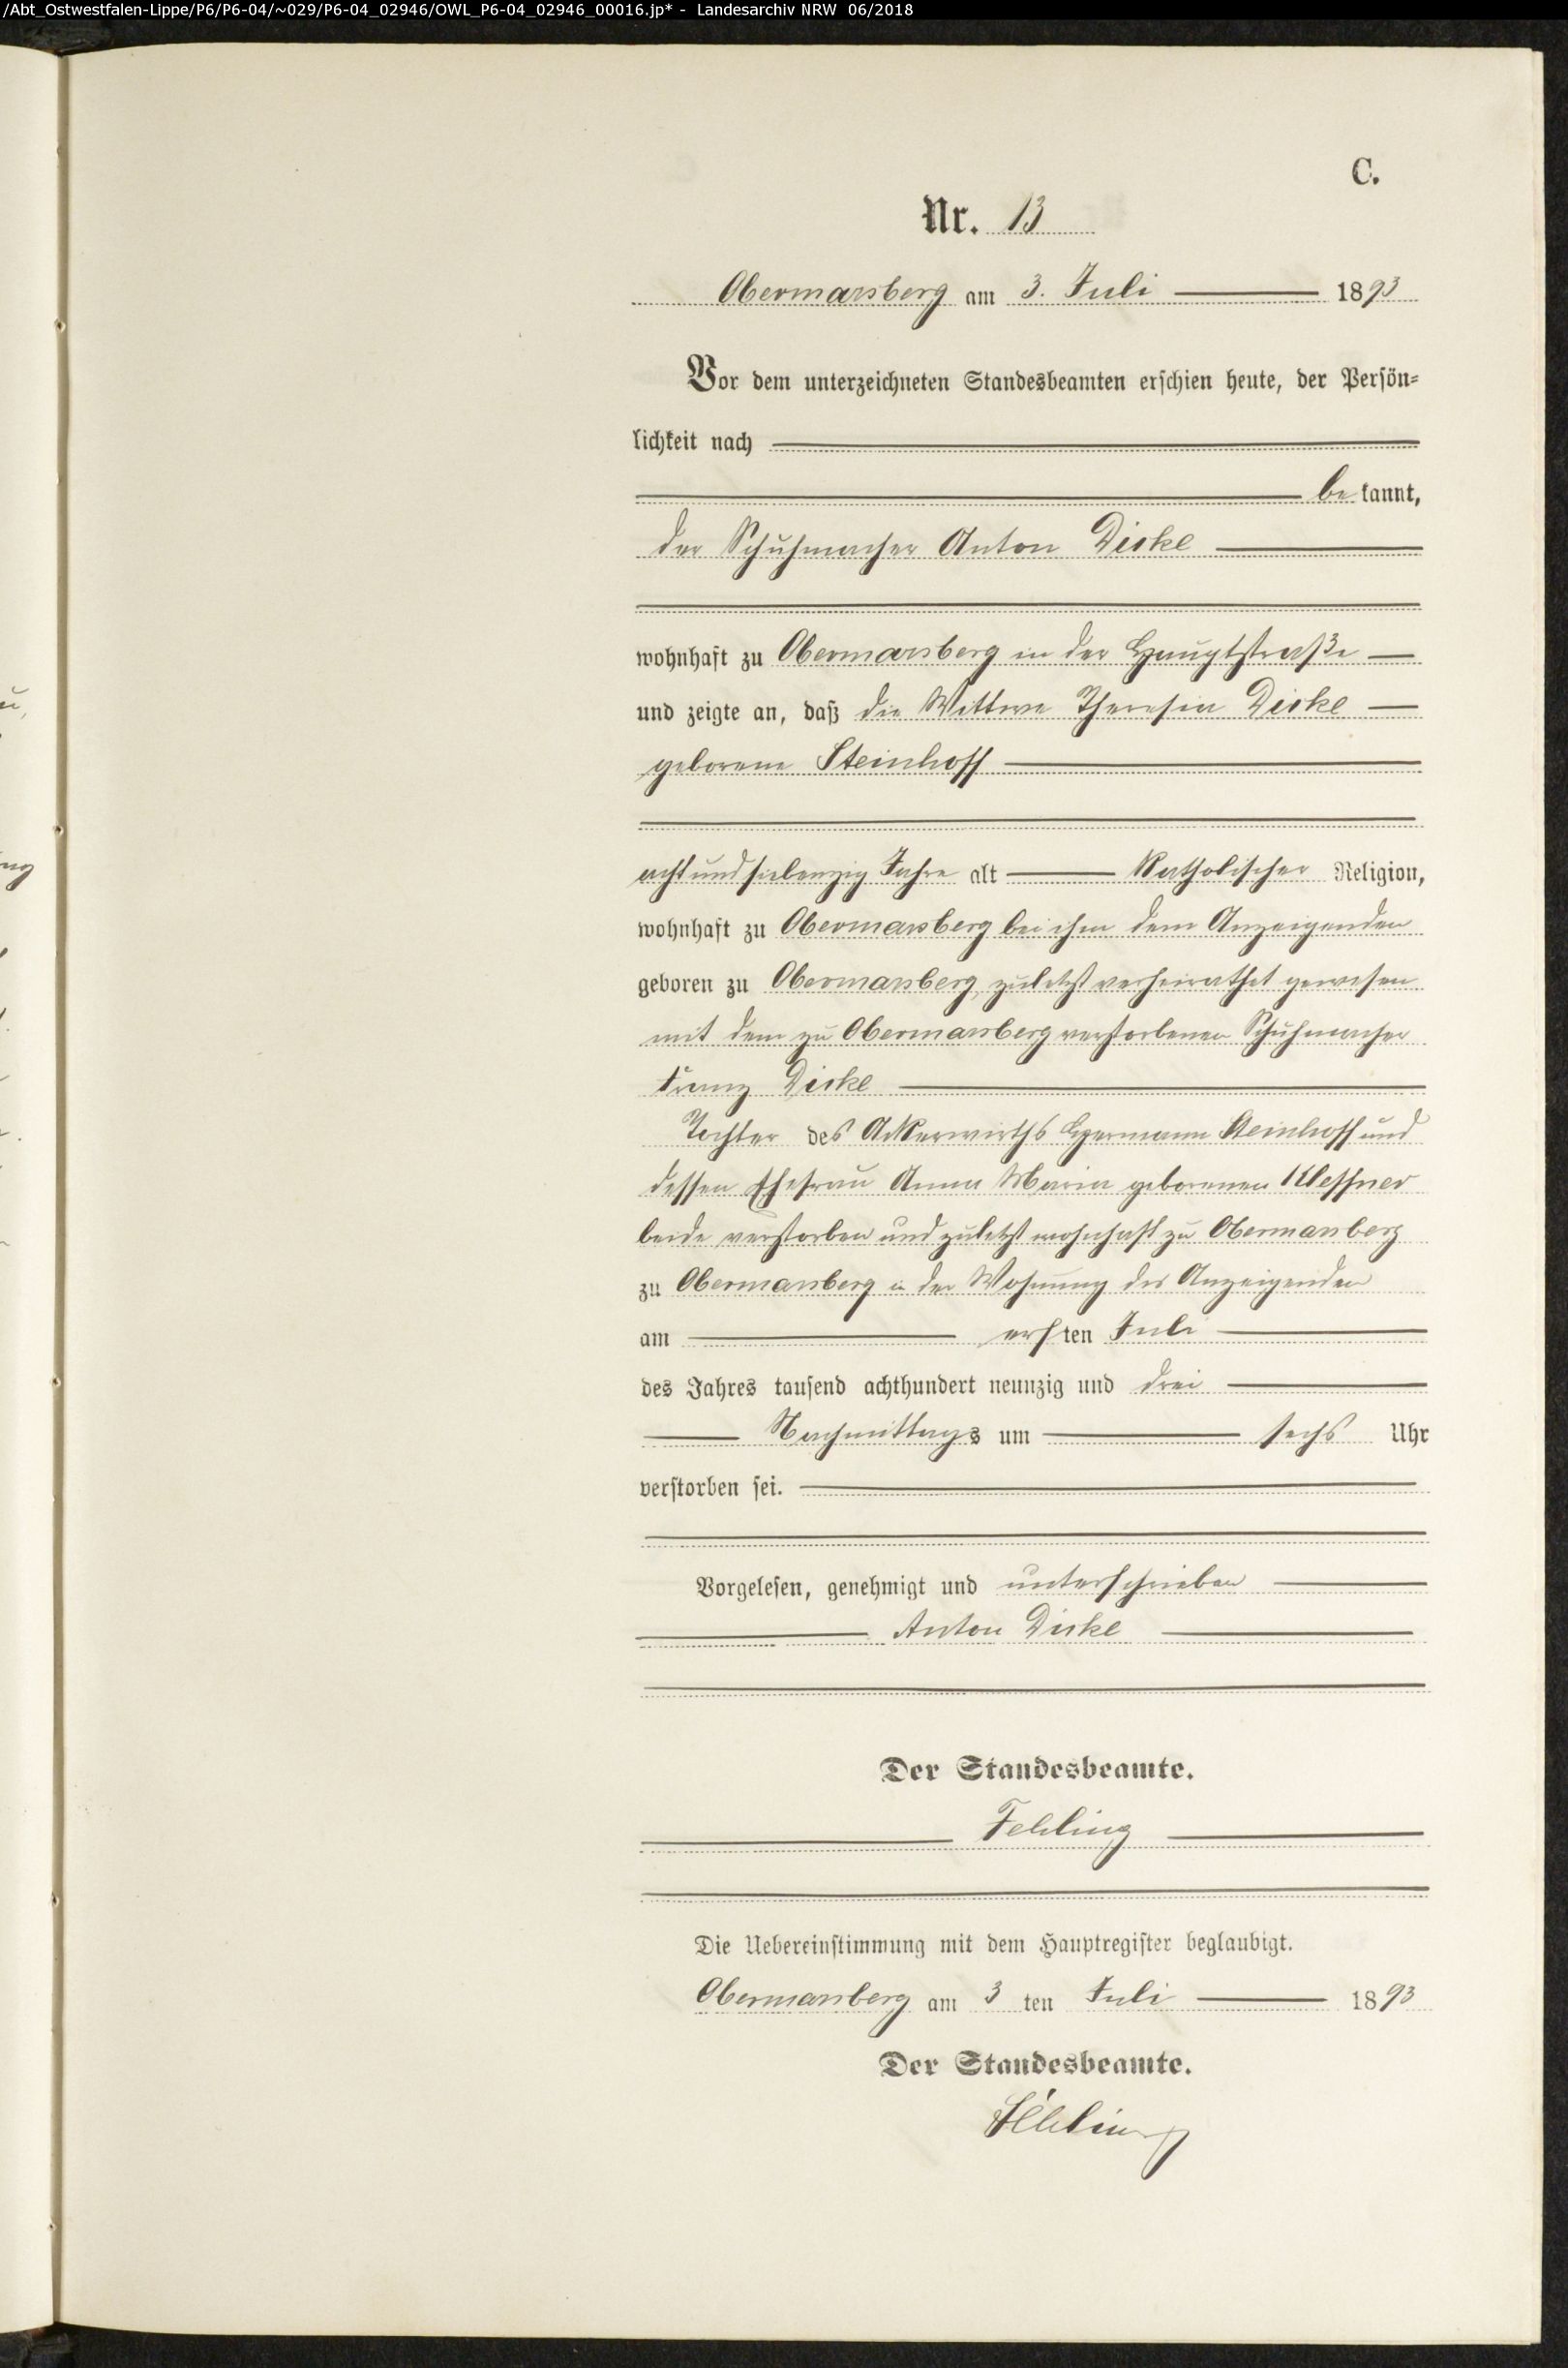 /Abt_Ostwestfalen-Lippe/P6/P6-04/~029/P6-04_02946/OWL_P6-04_02946_00016.jp* - Landesarchiv NRW 06/2018
C.
Nr. 13
Obermarsberg am 3. Juli 1893
Vor dem unterzeichneten Standesbeamten erschien heute, der Persön-
lichkeit nach
be kannt,
der Schuhmacher Anton Dicke
wohnhaft zu Obermarsberg in der Hauptstraße
und zeigte an, daß die Wittwe Theresia Dicke
geborene Steinhoff
acht und siebenzig Jahre alt katholischer Religion,
wohnhaft zu Obermarsberg bei ihm dem Anzeigenden
geboren zu Obermarsberg, zuletzt verheirathet gewesen
mit dem zu Obermarsberg verstorbenen Schuhmacher
Franz Dicke
Tochter des Ackerwirths Hermann Steinhoff und
dessen Ehefrau Anna Maria geborenen
beide verstorben und zuletzt wohnhaft zu Obermarsberg
zu Obermarsberg in der Wohnung des Anzeigenden
am ersten Juli
des Jahres tausend achthundert neunzig und drei
Nachmittags um sechs Uhr
verstorben sei.
Vorgelesen, genehmigt und unterschrieben
Anton Dicke
Der Standesbeamte.
Fehling
Die Uebereinstimmung mit dem Hauptregister beglaubigt.
Obermarsberg am 3 ten Juli 1893
Der Standesbeamte.
Fehling